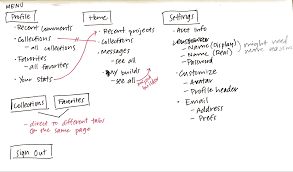 MENU
Profile
- Recent comments
- Collections
- all collections
- Favorites
- all favorites
- Your stats
Home
- Recent projects
- Collections
- Messages
- see all
- My builds
- see all
Settings
- Acct Info
- Name (Display)
- Name (Real)
- Password
might need more room
- Customize
- Avatar
- Profile header
- Email
- Address
- Prefs
Collections
Favorites
- direct to different tabs
of the same page
Sign Out